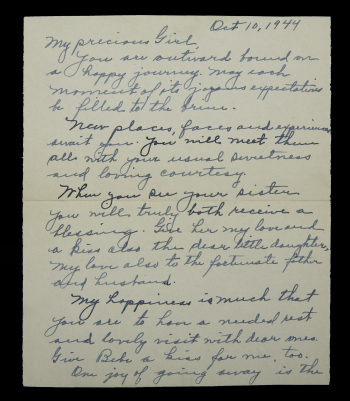 Oct 10, 1944
My precious Girl,
You are outward bound on
a happy journey. May each
moment of its joyous expectations
be filled to the brim.
New places, faces and experiences
await you. You will meet them
all with your usual sweetness
and loving courtesy.
When you see your sister
you will truly both receive a
blessing. Give her my love and
a kiss also the dear little daughter,
my love also to the fortunate father
and husband.
My happiness is much that
you are to have a needed rest
and lovely visit with dear ones.
Give Bebe a kiss for me, too.
One joy of going away is the